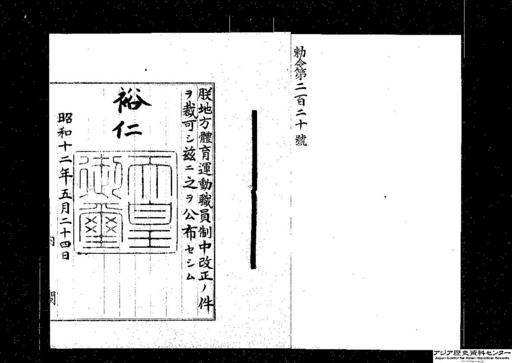 勅令第二百二十號
朕地方體育運動職員制中改正ノ件
ヲ裁可シ茲ニ之ヲ公布セシム
裕仁
天皇御璽
昭和十二年五月二十四日
内閣
アジア歴史資料センター
Japan Center for Asian Historical Records